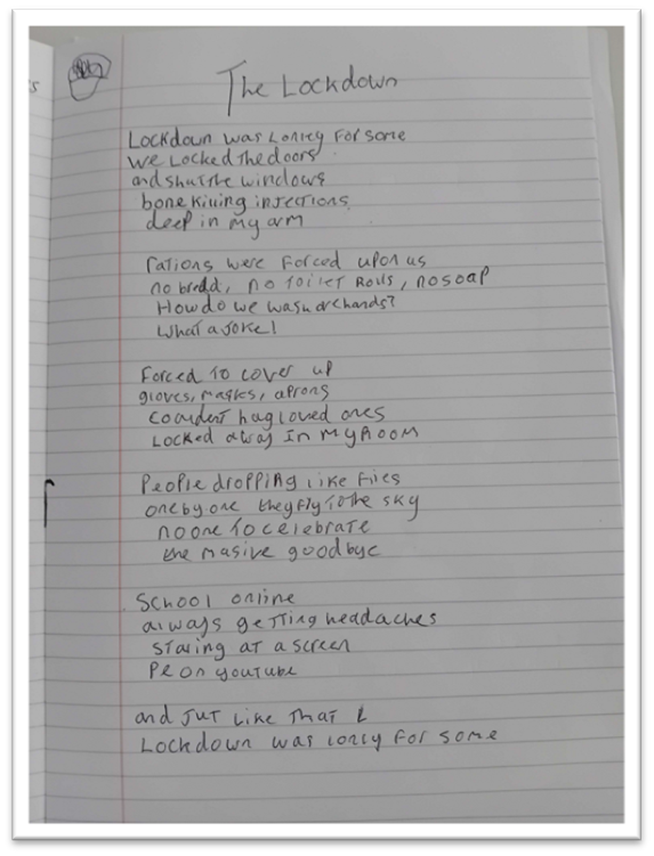 The Lockdown
Lockdown was Lonley for some
we Locked the doors
and shut the windows
bone killing injections
deep in my arm
rations were forced upon us
no bredd, no toilet Rolls, no soap
How do we wash or hands?
What a joke!
Forced to cover up
gloves, masks, aprons
hug loved ones
Locked away In my Room
People dropping like flies
one by one they fly to the sky
no one to celebrate
the masive goodbye
School online
always getting headaches
staring at a screen
PE on youtube
and Jut Like That L
Lockdown was lonley for some